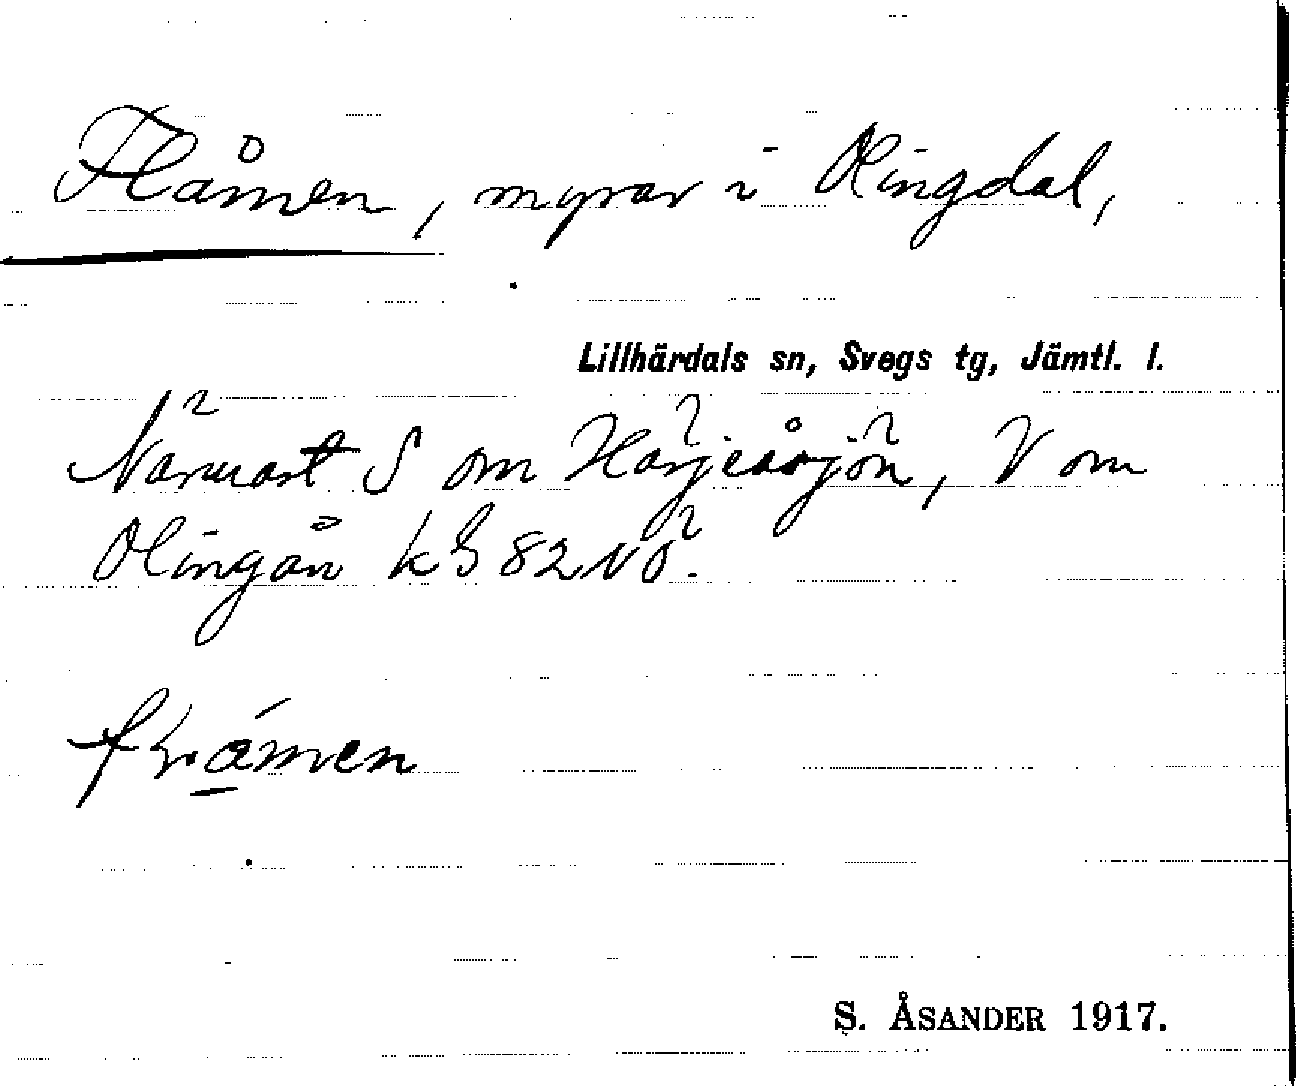 Flåmen, myrar i Olingdal,
Lillhärdals sn, Svegs tg, Jämtl. l.
Närmast S om Härjeåsjön, V om
Olingån k G 82 NÖ.
S. ÅSANDER 1917.